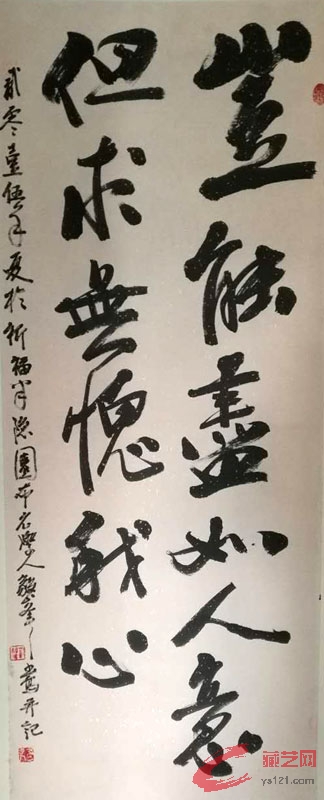 豈能盡如人意
但求無愧我心
貳零壹伍年夏於祈福半隱園布衣學人
書并記
藏艺网
ys121.com